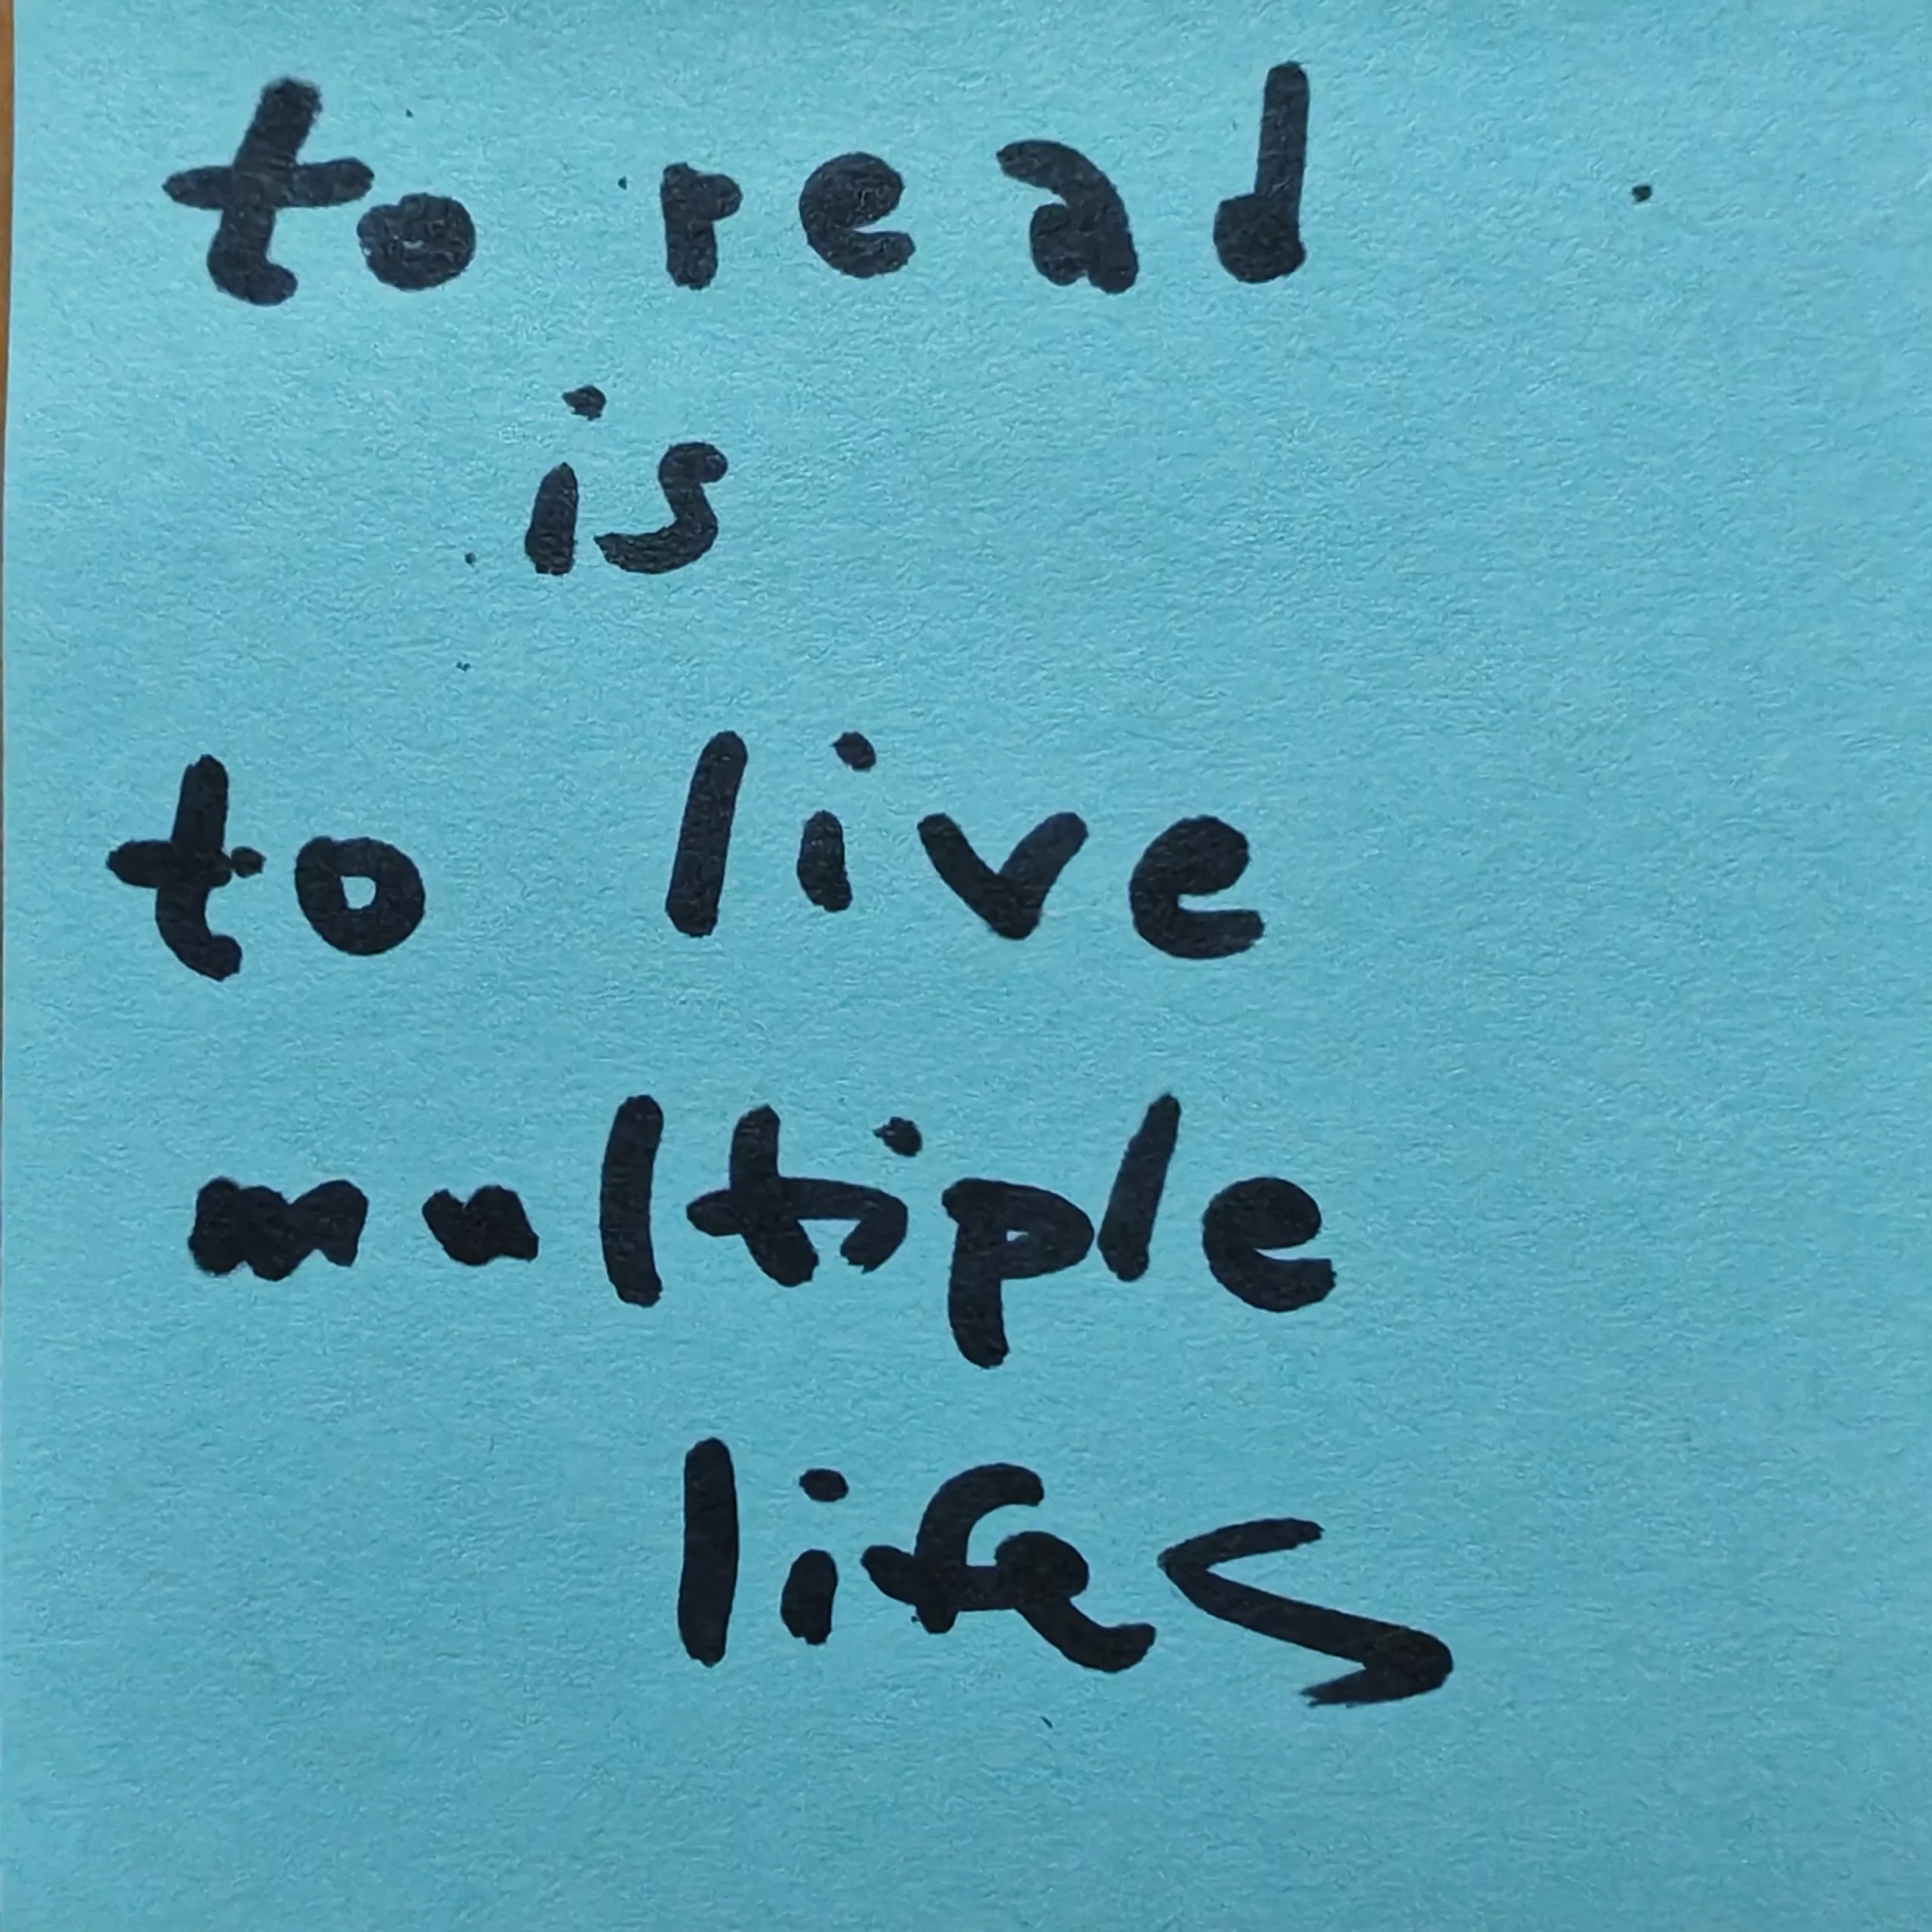 to read
is
to live
multiple
lifes